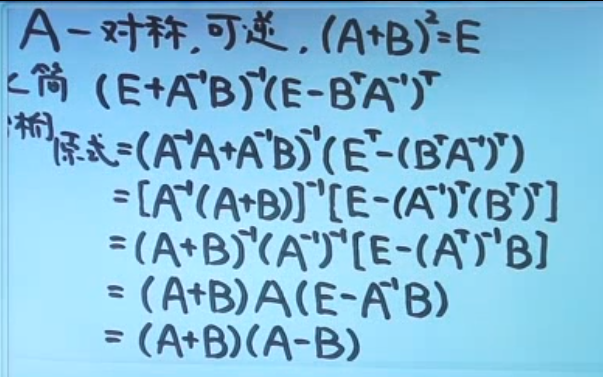 A-对称,可逆,(A+B)²=E
化简 (E+A⁻¹B)⁻¹(E-BᵀA⁻¹)ᵀ
[分析] 原式=(A⁻¹A+A⁻¹B)⁻¹(Eᵀ-(BᵀA⁻¹)ᵀ)
=[A⁻¹(A+B)]⁻¹[E-(A⁻¹)ᵀ(Bᵀ)ᵀ]
=(A+B)⁻¹(A⁻¹)⁻¹[E-(Aᵀ)⁻¹B]
=(A+B)A(E-A⁻¹B)
=(A+B)(A-B)